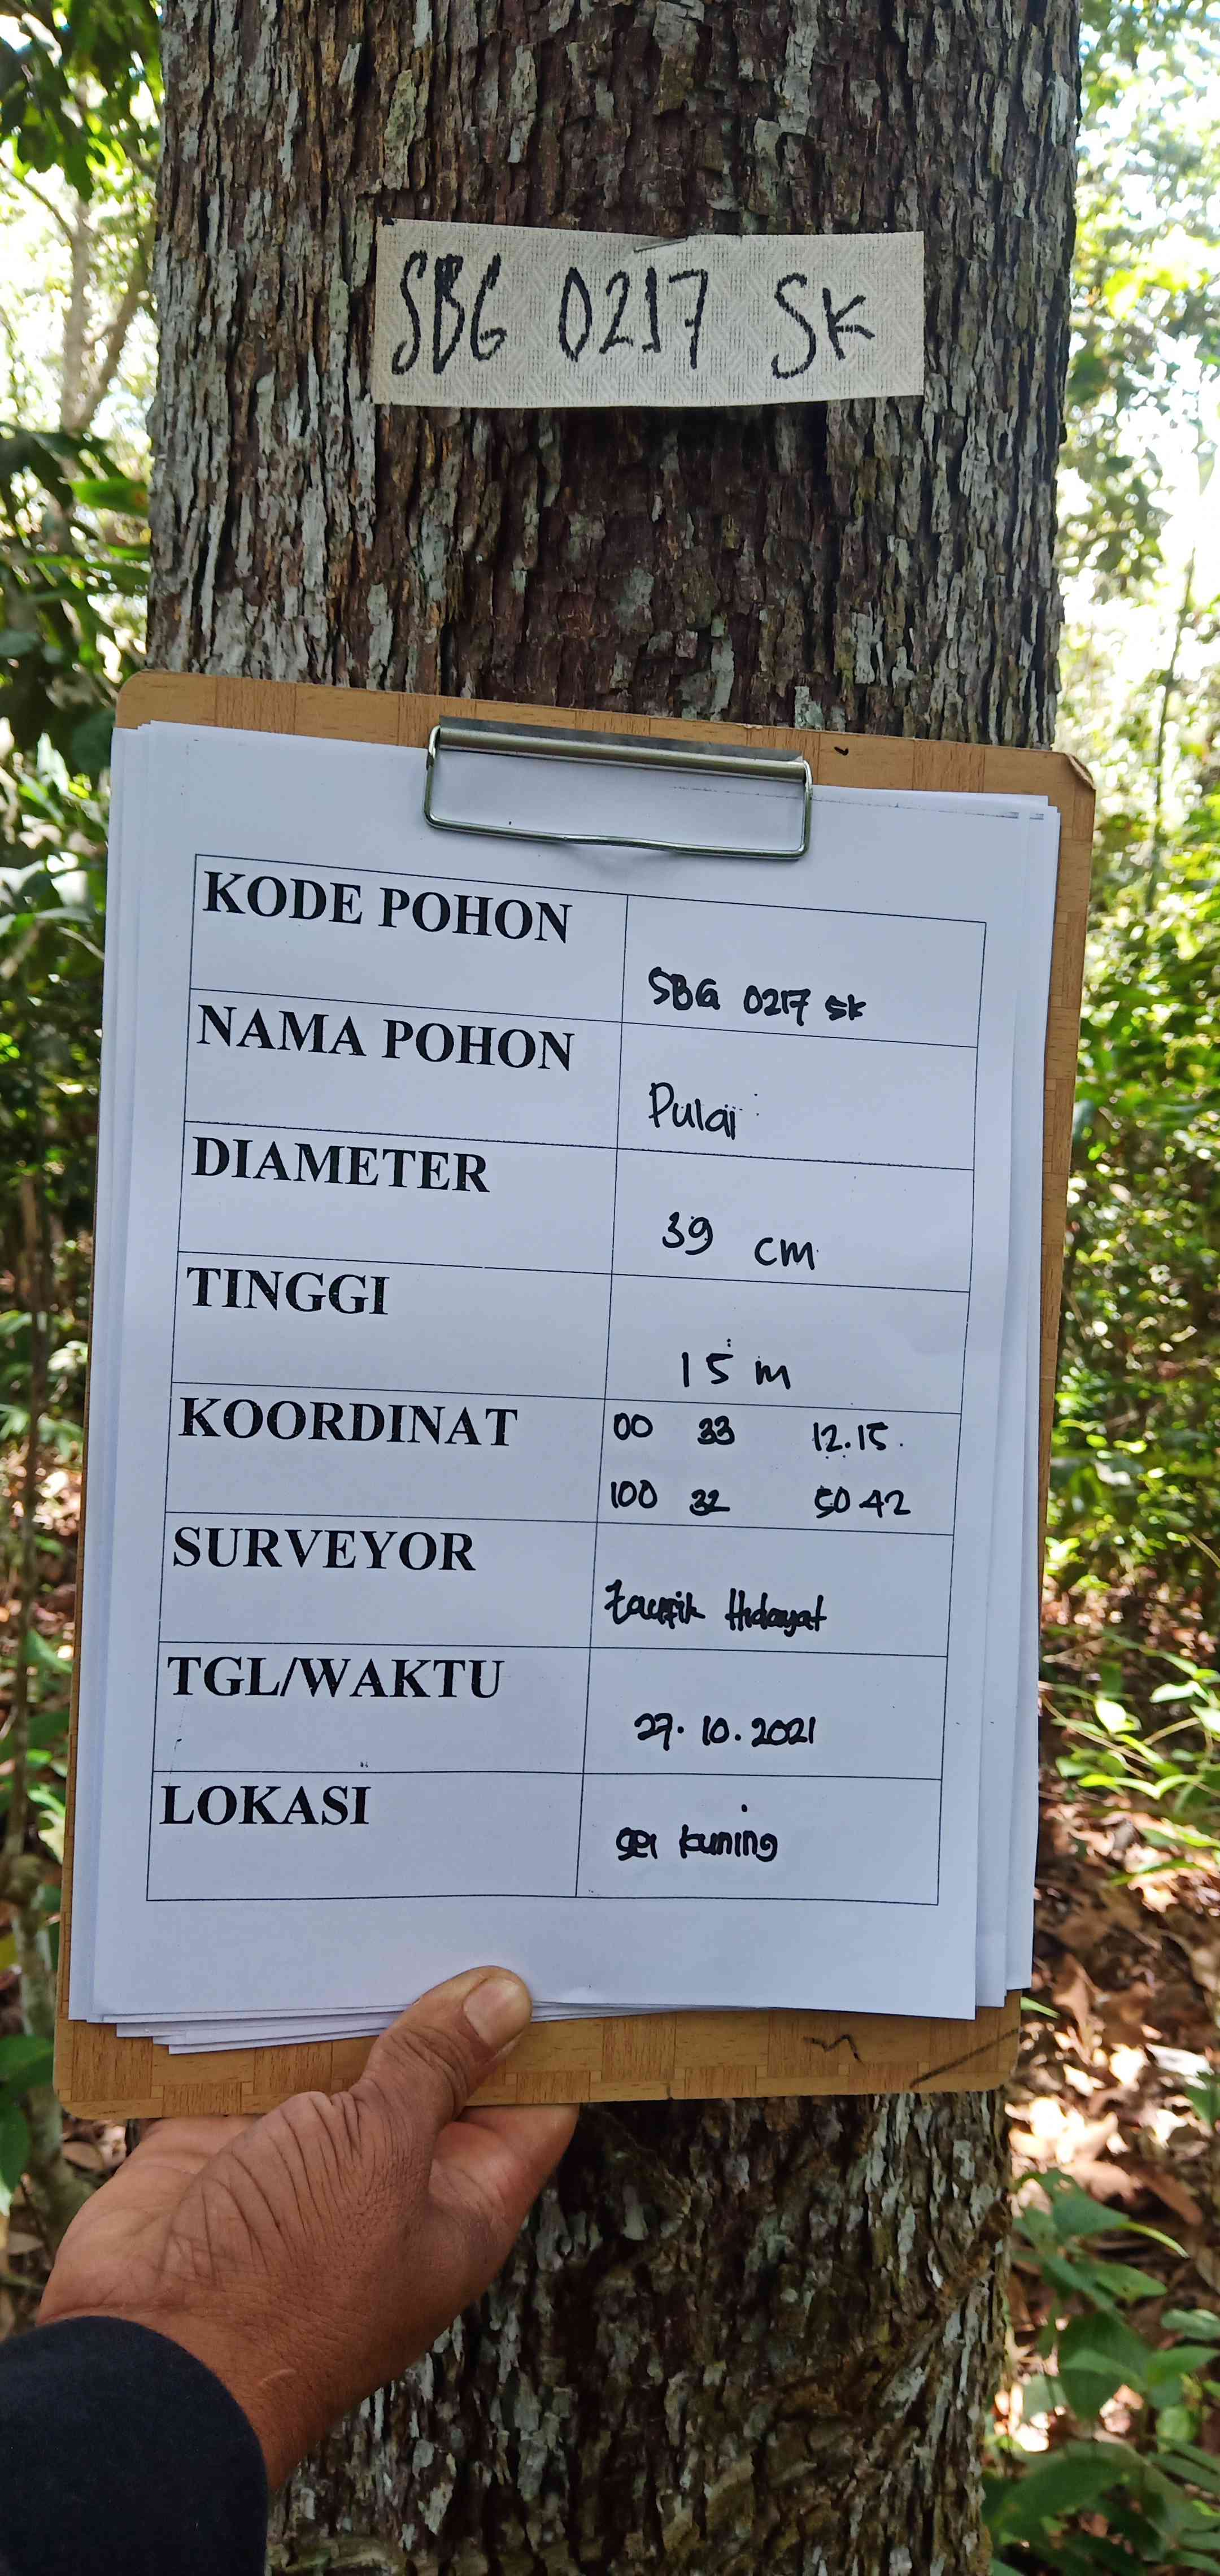 SBG 0217 SK
KODE POHON
SBG 0217 SK
NAMA POHON
Pulai
DIAMETER
39 cm
TINGGI
15 m
KOORDINAT
00 33 12.15
100 32 50 42
SURVEYOR
taufik Hidayat
TGL/WAKTU
27.10.2021
LOKASI
sei kuning